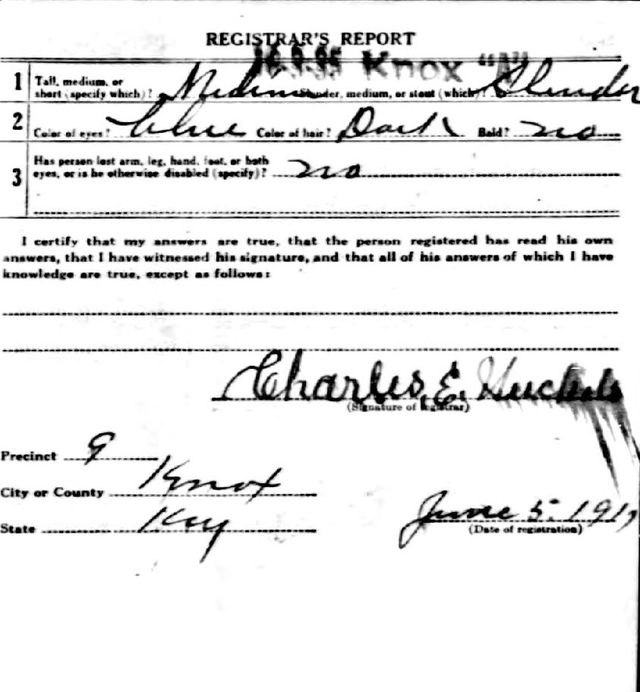 REGISTRAR'S REPORT
Knox "A"
1 Tall, medium, or short (specify which)? Medium Slender, medium, or stout (which)? Slender
2 Color of eyes? blue Color of hair? Dark Bald? no
3 Has person lost arm, leg, hand, foot, or both eyes, or is he otherwise disabled (specify)? no
I certify that my answers are true, that the person registered has read his own
answers, that I have witnessed his signature, and that all of his answers of which I have
knowledge are true, except as follows:
Charles E.
(Signature of registrar)
Precinct 9
City or County Knox
State Ky
June 5. 1917
(Date of registration)